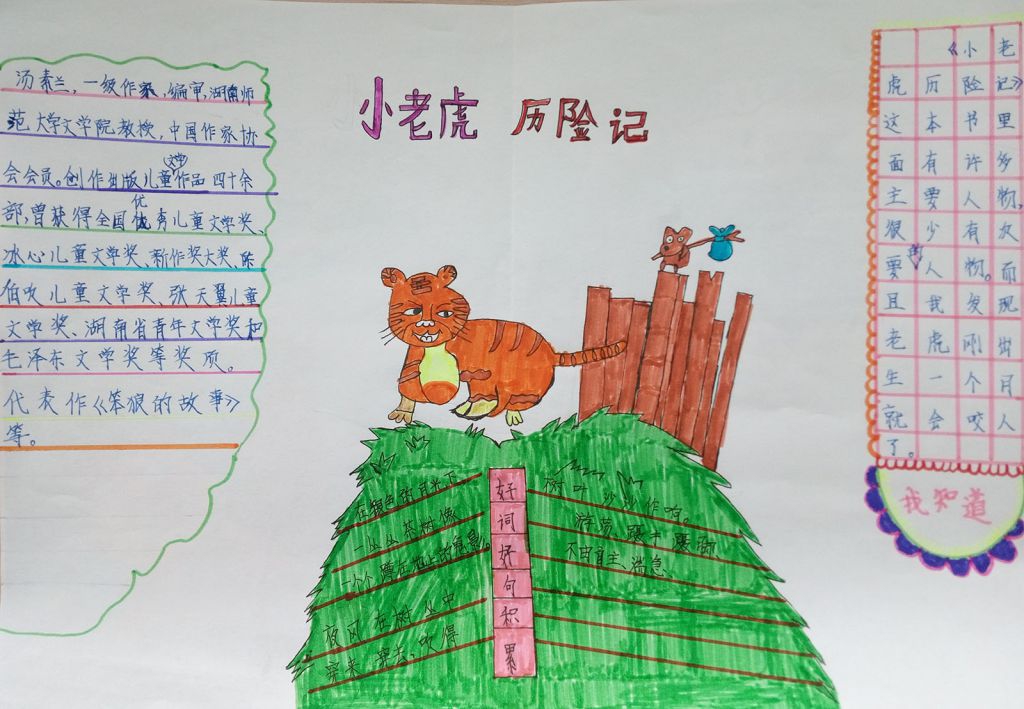 小老虎 历险记
汤素兰,一级作家,编审,湖南师
范大学文学院教授,中国作家协
会会员。创作出版儿童文学作品四十余
部,曾获得全国优秀儿童文学奖、
冰心儿童文学奖、新作奖大奖、陈
伯吹儿童文学奖、张天翼儿童
文学奖、湖南省青年文学奖和
毛泽东文学奖等奖项。
代表作《笨狼的故事》
等。
好词好句积累
在银色的月光下,
一丛丛茶树像
一个个蹲在地上的
夜风在树丛中
穿来穿去,吹得
树叶沙沙作响。
游荡、
不由自主、
《小老
虎历险记》
这本书里
面有许多
主要人物,
很少有次
要的人物。而
且我发现
老虎刚出
生一个月
就会咬人
了。
我知道